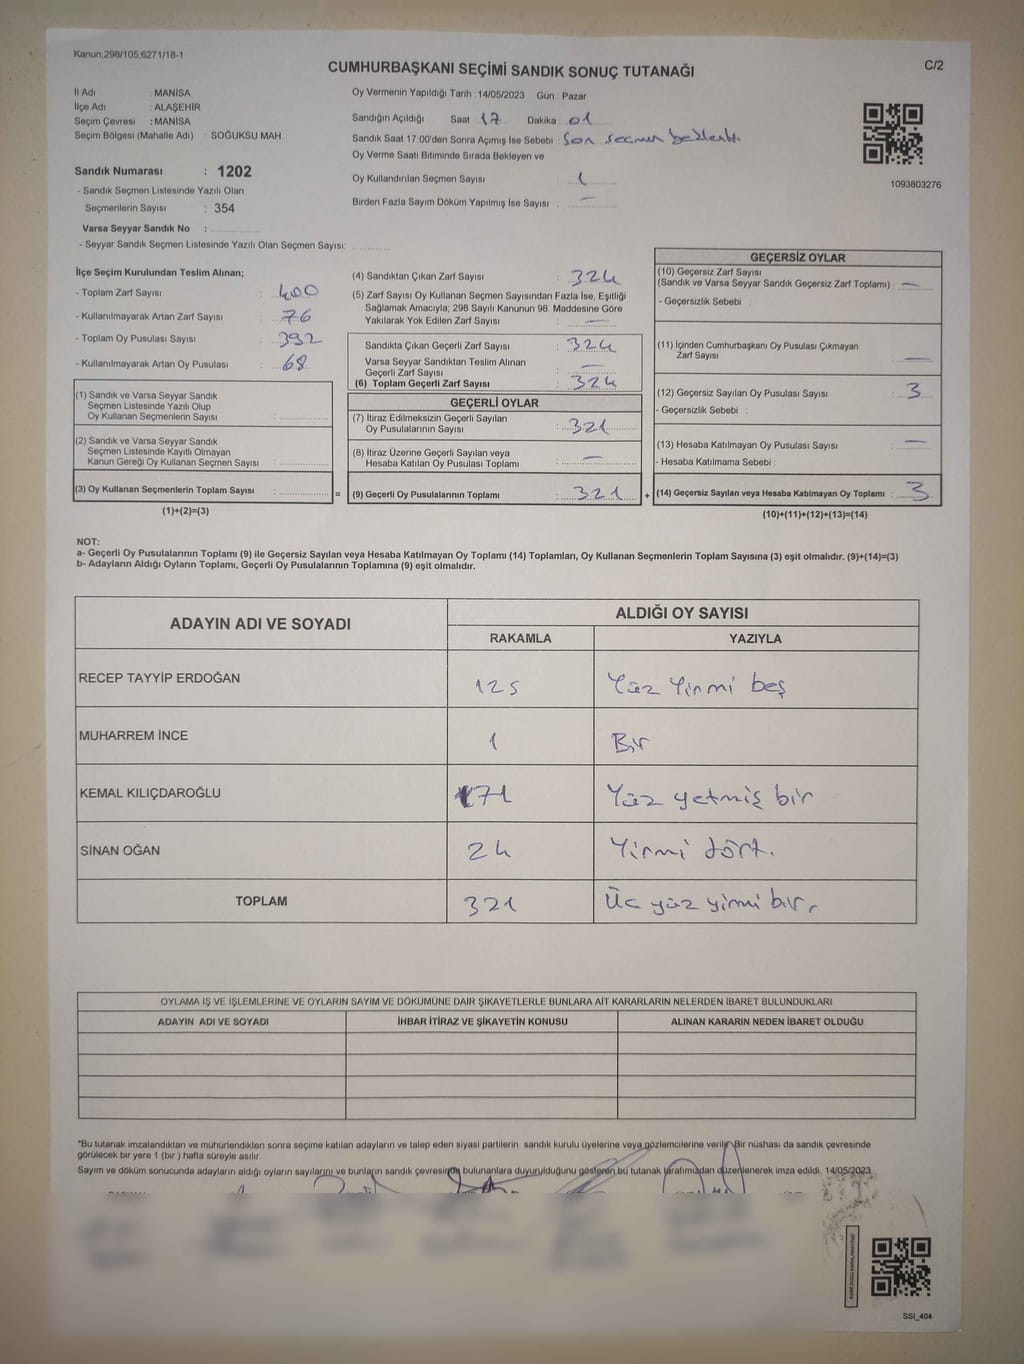 Kanun:298/105;6271/18-1
C/2
CUMHURBAŞKANI SEÇİMİ SANDIK SONUÇ TUTANAĞI
İl Adı : MANİSA
İlçe Adı : ALAŞEHİR
Seçim Çevresi : MANİSA
Seçim Bölgesi (Mahalle Adı) : SOĞUKSU MAH.
Sandık Numarası : 1202
- Sandık Seçmen Listesinde Yazılı Olan
Seçmenlerin Sayısı : 354
Varsa Seyyar Sandık No :
- Seyyar Sandık Seçmen Listesinde Yazılı Olan Seçmen Sayısı:
Oy Vermenin Yapıldığı Tarih : 14/05/2023 Gün : Pazar
Sandığın Açıldığı Saat 17 Dakika 01
Sandık Saat 17:00'den Sonra Açımış İse Sebebi : Son seçmen beklendi
Oy Verme Saati Bitiminde Sırada Bekleyen ve
Oy Kullandırılan Seçmen Sayısı : 1
Birden Fazla Sayım Döküm Yapılmış İse Sayısı : —
1093803276
İlçe Seçim Kurulundan Teslim Alınan;
- Toplam Zarf Sayısı : 400
- Kullanılmayarak Artan Zarf Sayısı : 76
- Toplam Oy Pusulası Sayısı : 392
- Kullanılmayarak Artan Oy Pusulası : 68
(1) Sandık ve Varsa Seyyar Sandık
Seçmen Listesinde Yazılı Olup
Oy Kullanan Seçmenlerin Sayısı :
(2) Sandık ve Varsa Seyyar Sandık
Seçmen Listesinde Kayıtlı Olmayan
Kanun Gereği Oy Kullanan Seçmen Sayısı :
(3) Oy Kullanan Seçmenlerin Toplam Sayısı : =
(1)+(2)=(3)
(4) Sandıktan Çıkan Zarf Sayısı : 324
(5) Zarf Sayısı Oy Kullanan Seçmen Sayısından Fazla İse, Eşitliği
Sağlamak Amacıyla; 298 Sayılı Kanunun 98. Maddesine Göre
Yakılarak Yok Edilen Zarf Sayısı : —
Sandıkta Çıkan Geçerli Zarf Sayısı : 324
Varsa Seyyar Sandıktan Teslim Alınan
Geçerli Zarf Sayısı : —
(6) Toplam Geçerli Zarf Sayısı : 324
GEÇERLİ OYLAR
(7) İtiraz Edilmeksizin Geçerli Sayılan
Oy Pusulalarının Sayısı : 321
(8) İtiraz Üzerine Geçerli Sayılan veya
Hesaba Katılan Oy Pusulası Toplamı : —
(9) Geçerli Oy Pusulalarının Toplamı : 321 +
GEÇERSİZ OYLAR
(10) Geçersiz Zarf Sayısı
(Sandık ve Varsa Seyyar Sandık Geçersiz Zarf Toplamı) : —
- Geçersizlik Sebebi :
(11) İçinden Cumhurbaşkanı Oy Pusulası Çıkmayan
Zarf Sayısı : —
(12) Geçersiz Sayılan Oy Pusulası Sayısı : 3
- Geçersizlik Sebebi :
(13) Hesaba Katılmayan Oy Pusulası Sayısı : —
- Hesaba Katılmama Sebebi :
(14) Geçersiz Sayılan veya Hesaba Katılmayan Oy Toplamı : 3
(10)+(11)+(12)+(13)=(14)
NOT:
a- Geçerli Oy Pusulalarının Toplamı (9) ile Geçersiz Sayılan veya Hesaba Katılmayan Oy Toplamı (14) Toplamları, Oy Kullanan Seçmenlerin Toplam Sayısına (3) eşit olmalıdır. (9)+(14)=(3)
b- Adayların Aldığı Oyların Toplamı, Geçerli Oy Pusulalarının Toplamına (9) eşit olmalıdır.
ADAYIN ADI VE SOYADI
ALDIĞI OY SAYISI
RAKAMLA YAZIYLA
RECEP TAYYİP ERDOĞAN 125 Yüz Yirmi beş
MUHARREM İNCE 1 Bir
KEMAL KILIÇDAROĞLU 171 Yüz yetmiş bir
SİNAN OĞAN 24 Yirmi dört.
TOPLAM 321 Üç yüz yirmi bir.
OYLAMA İŞ VE İŞLEMLERİNE VE OYLARIN SAYIM VE DÖKÜMÜNE DAİR ŞİKAYETLERLE BUNLARA AİT KARARLARIN NELERDEN İBARET BULUNDUKLARI
ADAYIN ADI VE SOYADI İHBAR İTİRAZ VE ŞİKAYETİN KONUSU ALINAN KARARIN NEDEN İBARET OLDUĞU
*Bu tutanak imzalandıktan ve mühürlendikten sonra seçime katılan adayların ve talep eden siyasi partilerin sandık kurulu üyelerine veya gözlemcilerine verilir. Bir nüshası da sandık çevresinde
görülecek bir yere 1 (bir ) hafta süreyle asılır.
Sayım ve döküm sonucunda adayların aldığı oyların sayılarını ve bunların sandık çevresinde bulunanlara duyurulduğunu gösteren bu tutanak tarafımızdan düzenlenerek imza edildi. 14/05/2023
SSI_404